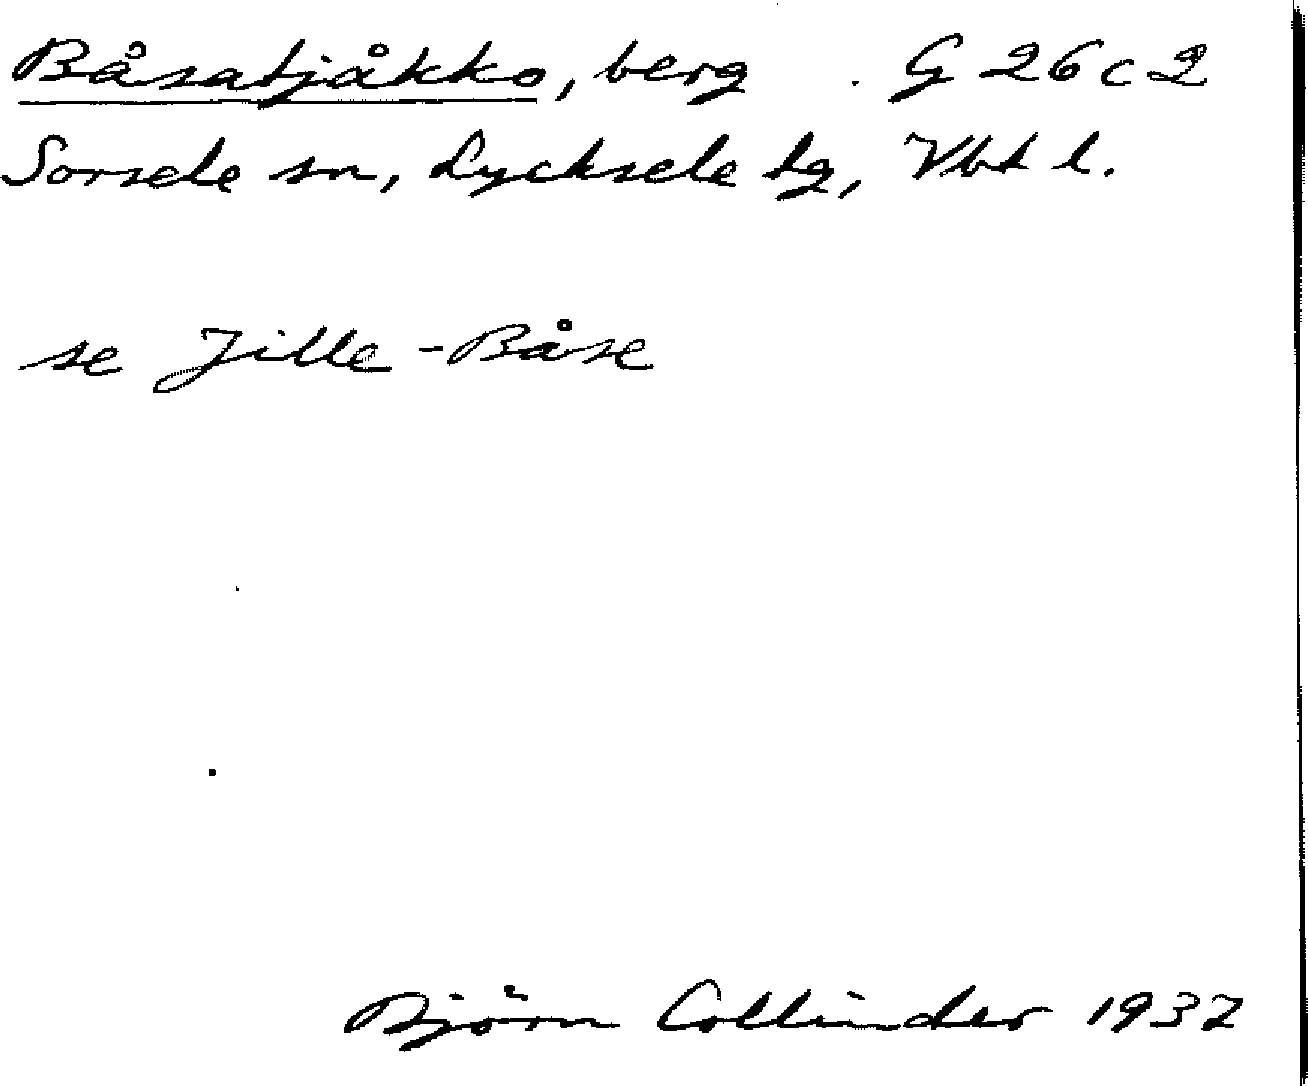 Båsatjåkko, berg . G 26 c 2
Sorsele sn, Lycksele tg, Vbt l.
se Jille-Båse
Björn Collinder 1937